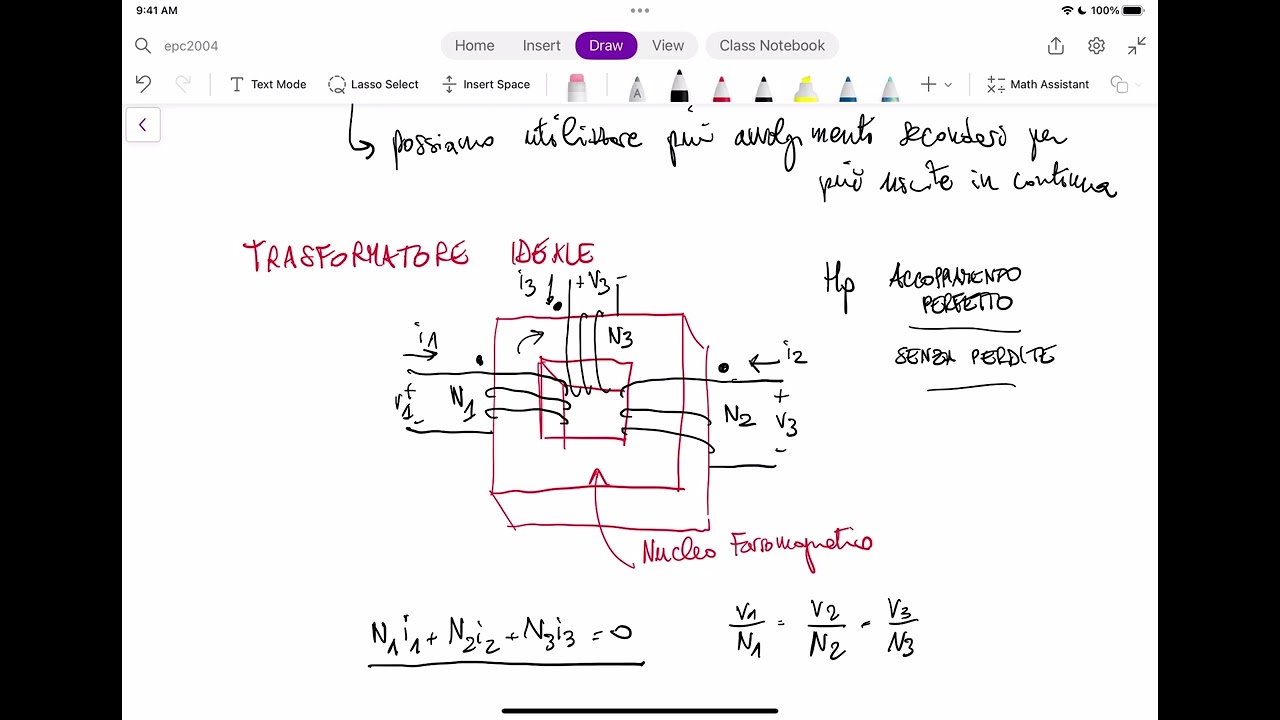 9:41 AM
100%
epc2004
Home Insert Draw View Class Notebook
Text Mode Lasso Select Insert Space A Math Assistant
possiamo utilizzare più avvolgimento secondari per
più uscite in continua
TRASFORMATORE IDEALE
Hp ACCOPPIAMENTO
PERFETTO
SENZA PERDITE
i3 + V3 -
N3
i1
i2
+ V1 -
N1
N2
+ V3 -
Nucleo Ferromagnetico
N1i1 + N2i2 + N3i3 = 0
V1/N1 = V2/N2 = V3/N3